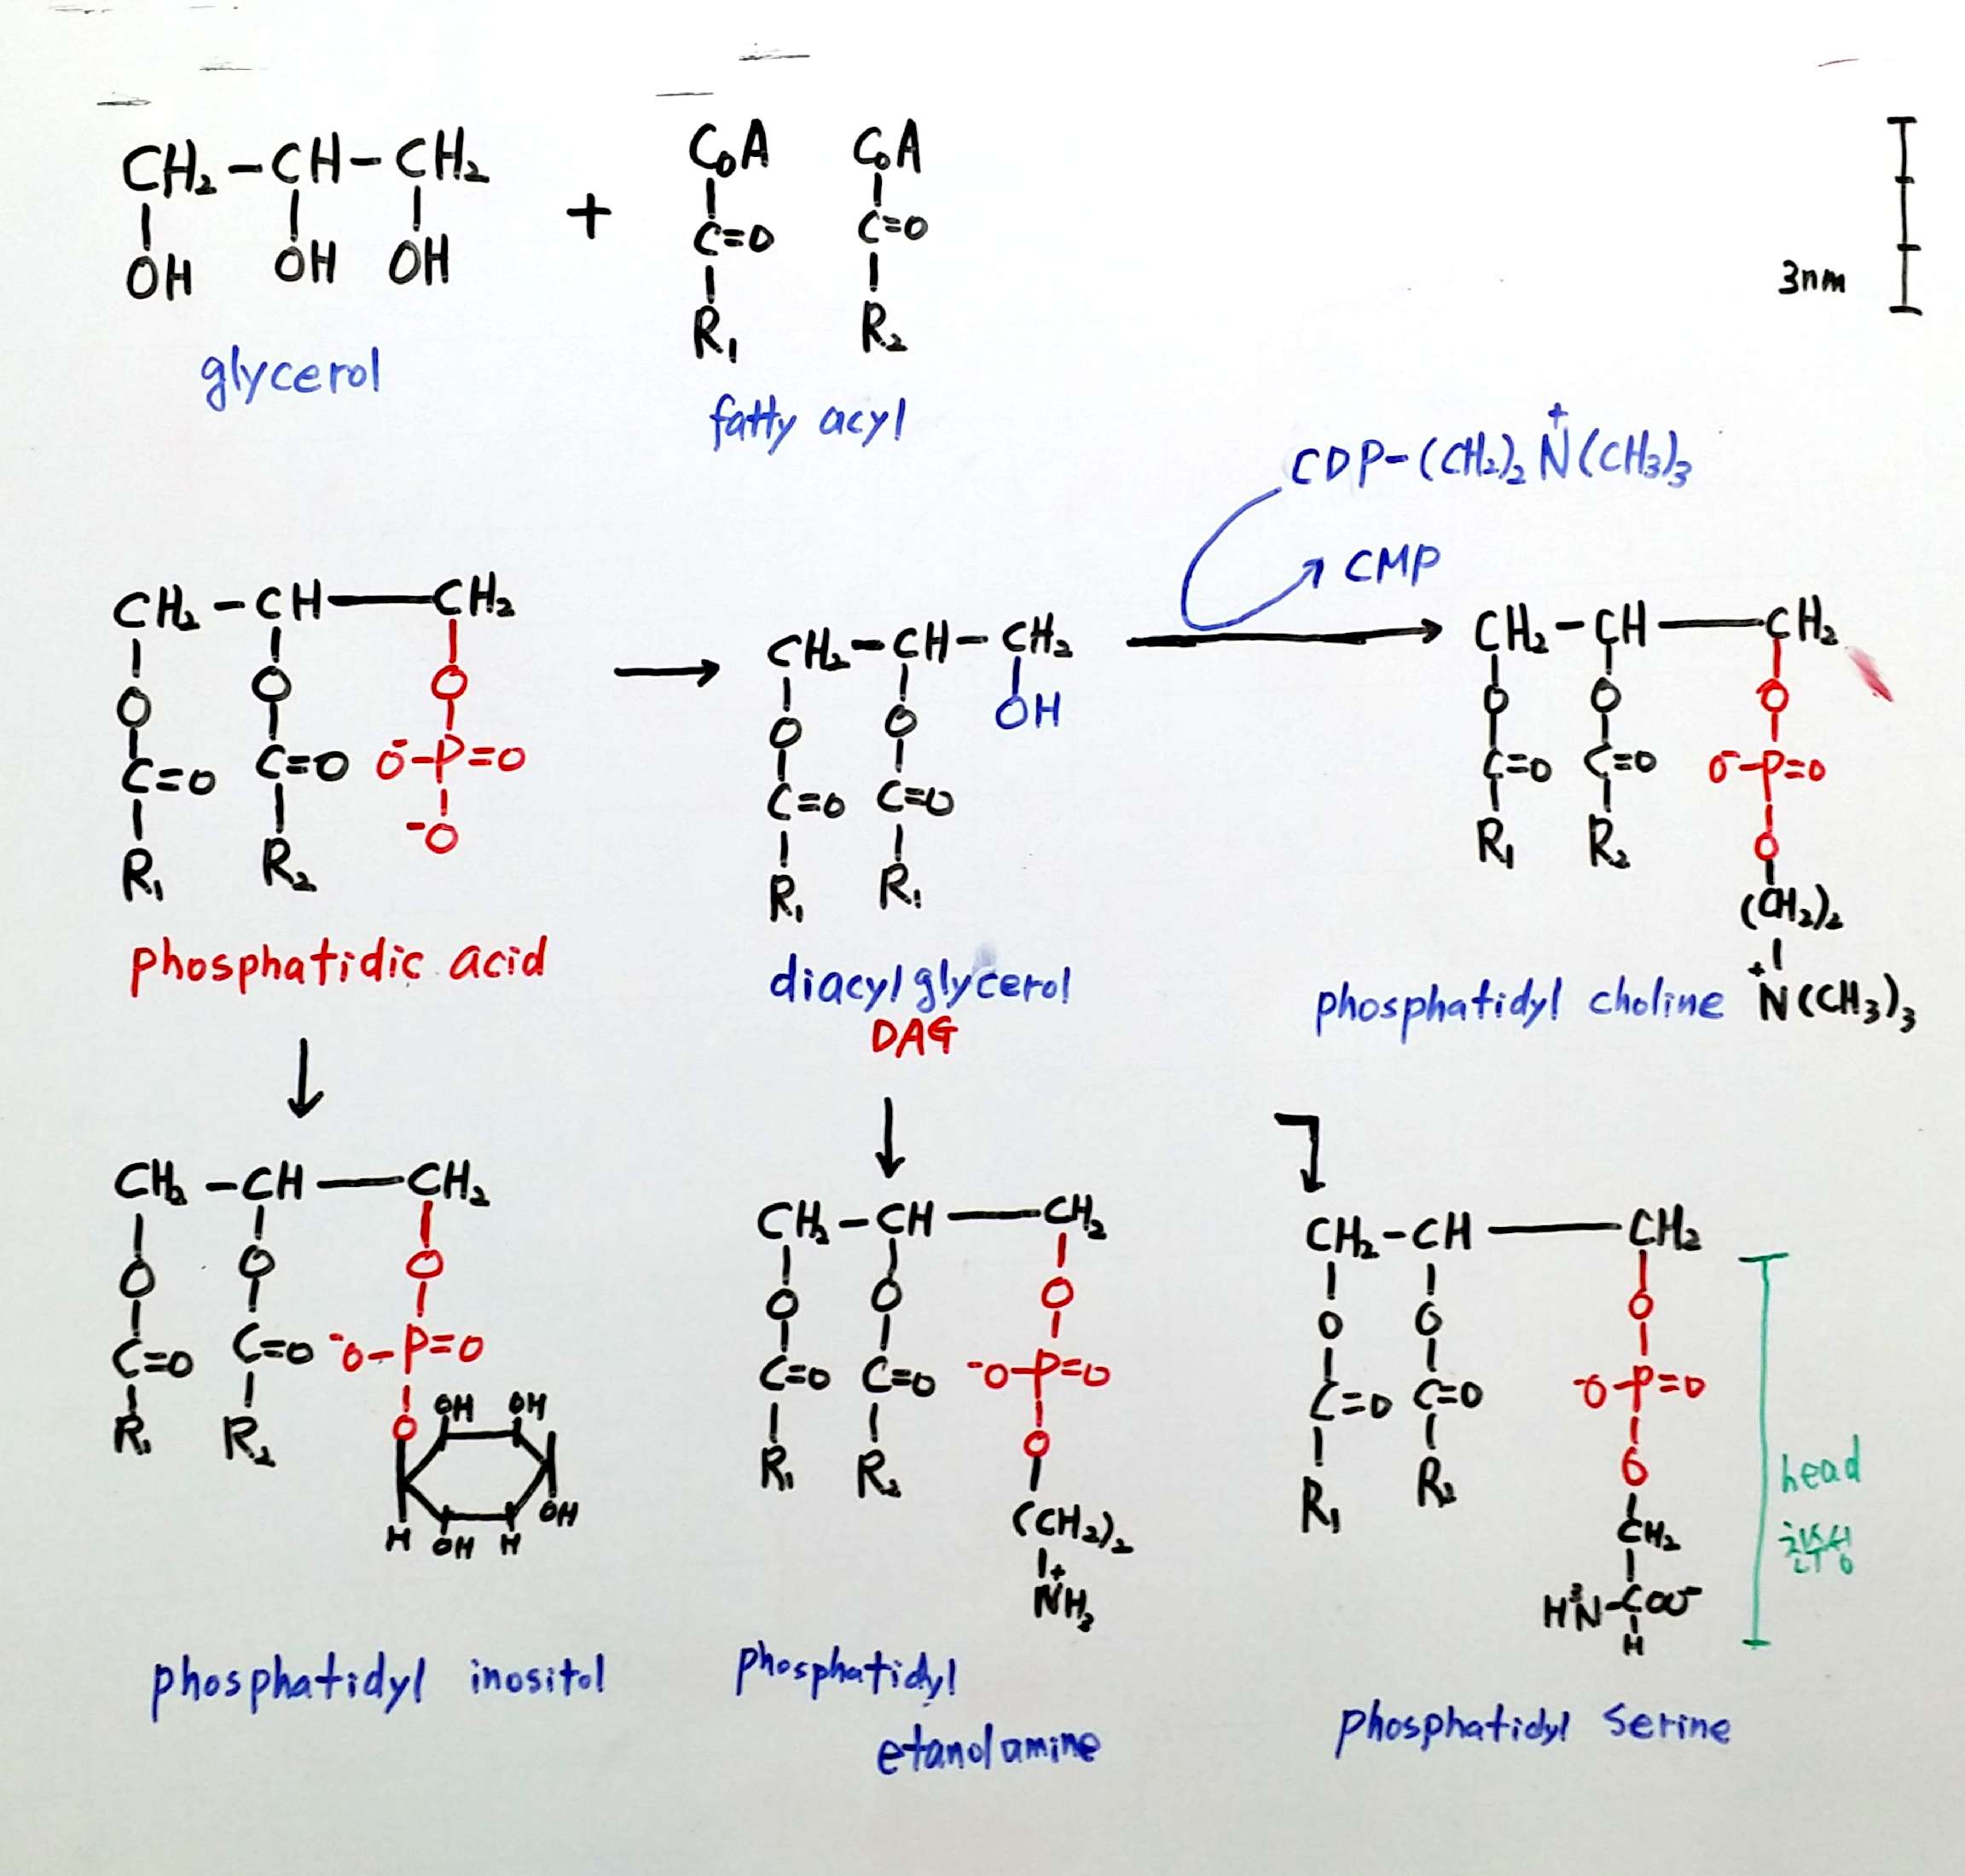 CH₂-CH-CH₂
OH OH OH
glycerol
+
CoA CoA
C=O C=O
R₁ R₂
fatty acyl
3nm
CDP-(CH₂)₂N⁺(CH₃)₃
CMP
CH₂-CH-CH₂
O O O
C=O C=O O⁻-P=O
R₁ R₂ ⁻O
phosphatidic acid
→
CH₂-CH-CH₂
O O OH
C=O C=O
R₁ R₁
diacylglycerol
DAG
→
CH₂-CH-CH₂
O O O
C=O C=O O⁻-P=O
R₁ R₂ O
(CH₂)₂
N⁺(CH₃)₃
phosphatidyl choline
↓
CH₂-CH-CH₂
O O O
C=O C=O ⁻O-P=O
R₁ R₂ O
OH OH
OH
H OH H
phosphatidyl inositol
↓
CH₂-CH-CH₂
O O O
C=O C=O ⁻O-P=O
R₁ R₂ O
(CH₂)₂
⁺NH₃
phosphatidyl
etanolamine
CH₂-CH-CH₂
O O O
C=O C=O ⁻O-P=O
R₁ R₂ O
CH₂
H³N-COO⁻
H
head
친수성
phosphatidyl serine